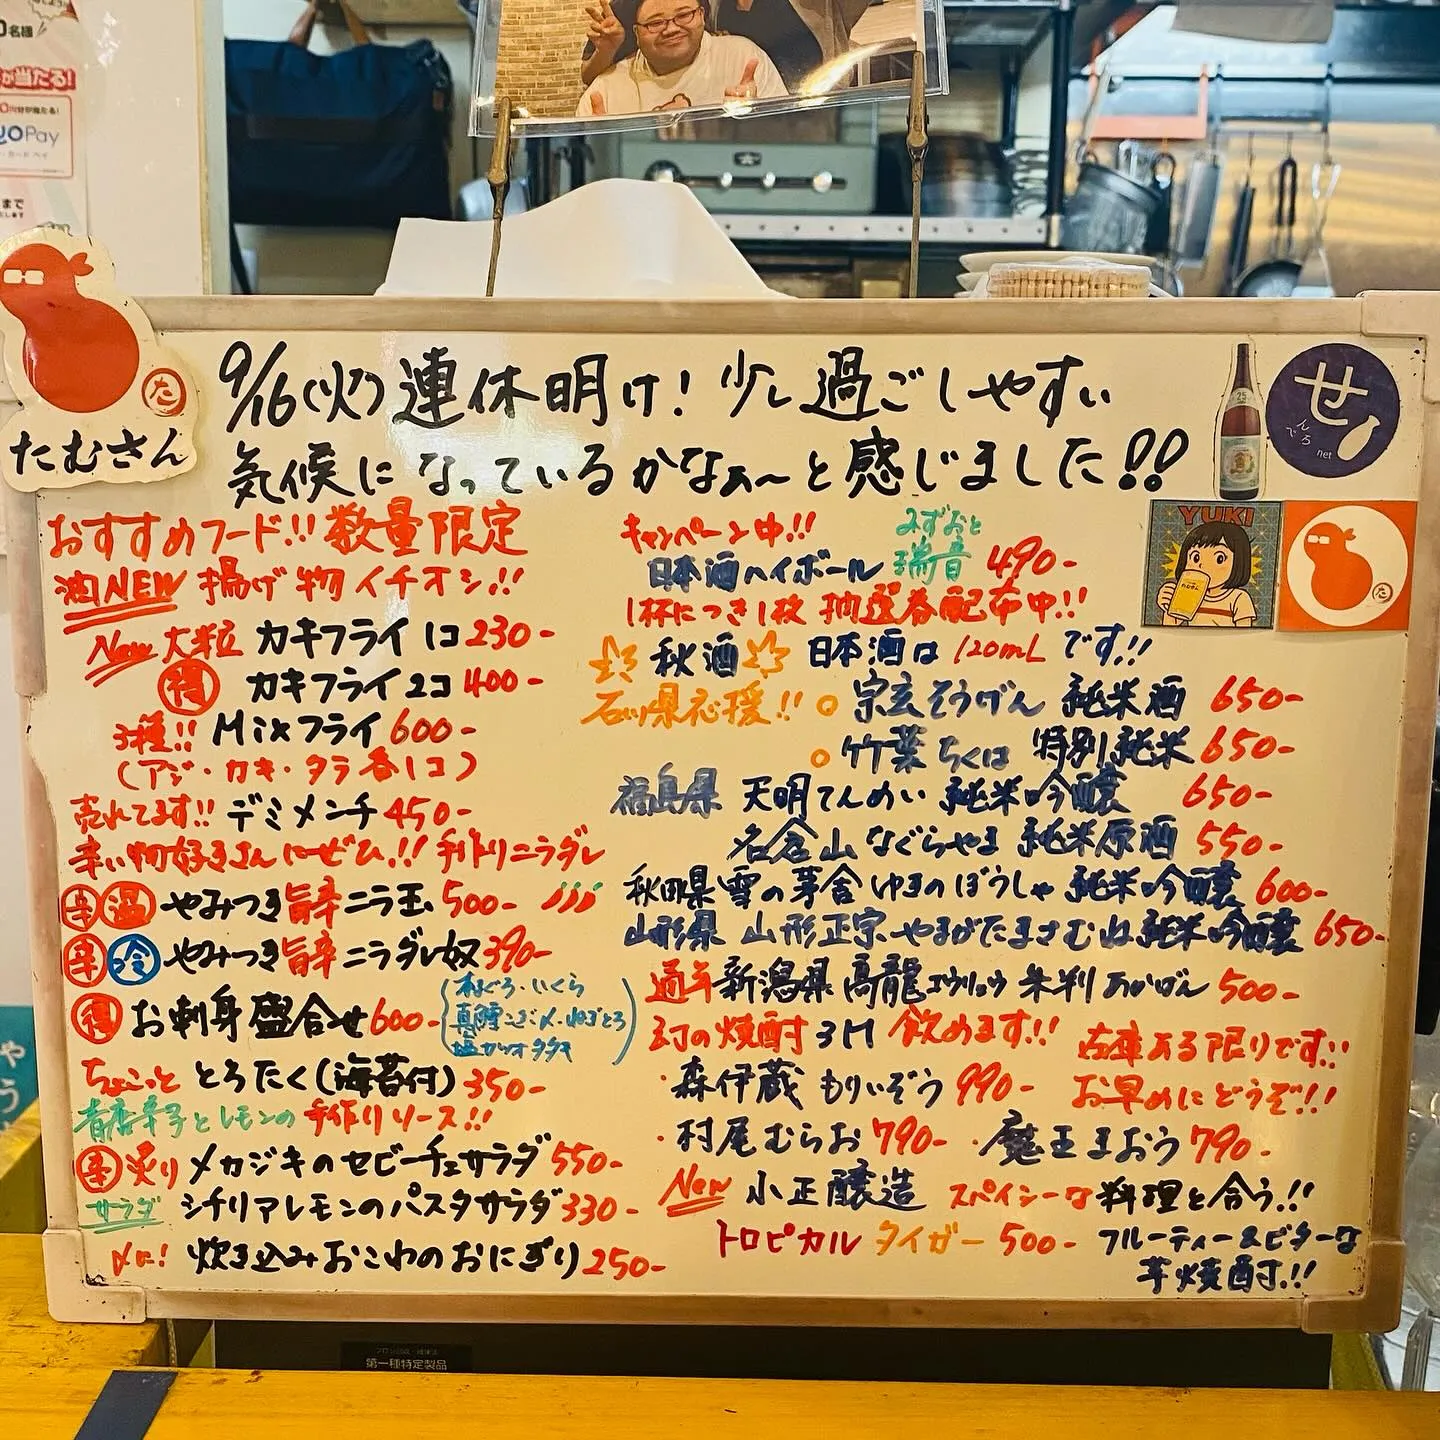 0名様
が当たる!
Pay
まで
たむさん
た
9/16(火)連休明け!少し過ごしやすい
気候になっているかなぁ〜と感じました!!
せ
んでろ
net
YUKI
おすすめフード!!数量限定
油NEW 揚げ物イチオシ!!
New大粒 カキフライ1コ230-
得 カキフライ2コ400-
3種!!Mixフライ600-
(アジ・カキ・タラ各1コ)
売れてます!!デミメンチ450-
辛い物好きさんにぜひ!!手作りニラダレ
辛 温 やみつき旨辛ニラ玉500-
辛 冷 やみつき旨辛ニラダレ奴390-
得 お刺身盛合せ600-
本まぐろ・いくら
真鯛こぶ〆・ねぎとろ
塩カツオタタキ
ちょこっと とろたく(海苔付)350-
青唐辛子とレモンの手作りソース!!
辛 炙りメカジキのセビーチェサラダ550-
サラダ シチリアレモンのパスタサラダ330-
〆に!炊き込みおこわのおにぎり250-
キャンペーン中!!
みずおと
日本酒ハイボール 瑞音 490-
1杯につき1枚 抽選券配布中!!
秋酒 日本酒は120mLです!!
石川県応援!!○宗玄そうげん 純米酒 650-
○竹葉ちくは 特別純米 650-
福島県 天明てんめい 純米吟醸 650-
名倉山なぐらやま 純米原酒 550-
秋田県 雪の茅舎ゆきのぼうしゃ 純米吟醸 600-
山形県 山形正宗やまがたまさむね純米吟醸 650-
通年 新潟県 高龍コウリュウ 朱判あかばん 500-
幻の焼酎3M 飲めます!! 在庫ある限りです!!
・森伊蔵 もりいぞう 990- お早めにどうぞ!!
・村尾むらお790- ・魔王まおう790-
New 小正醸造 スパイシーな料理と合う!!
トロピカル タイガー 500- フルーティー&ビターな
芋焼酎!!
第一種特定製品